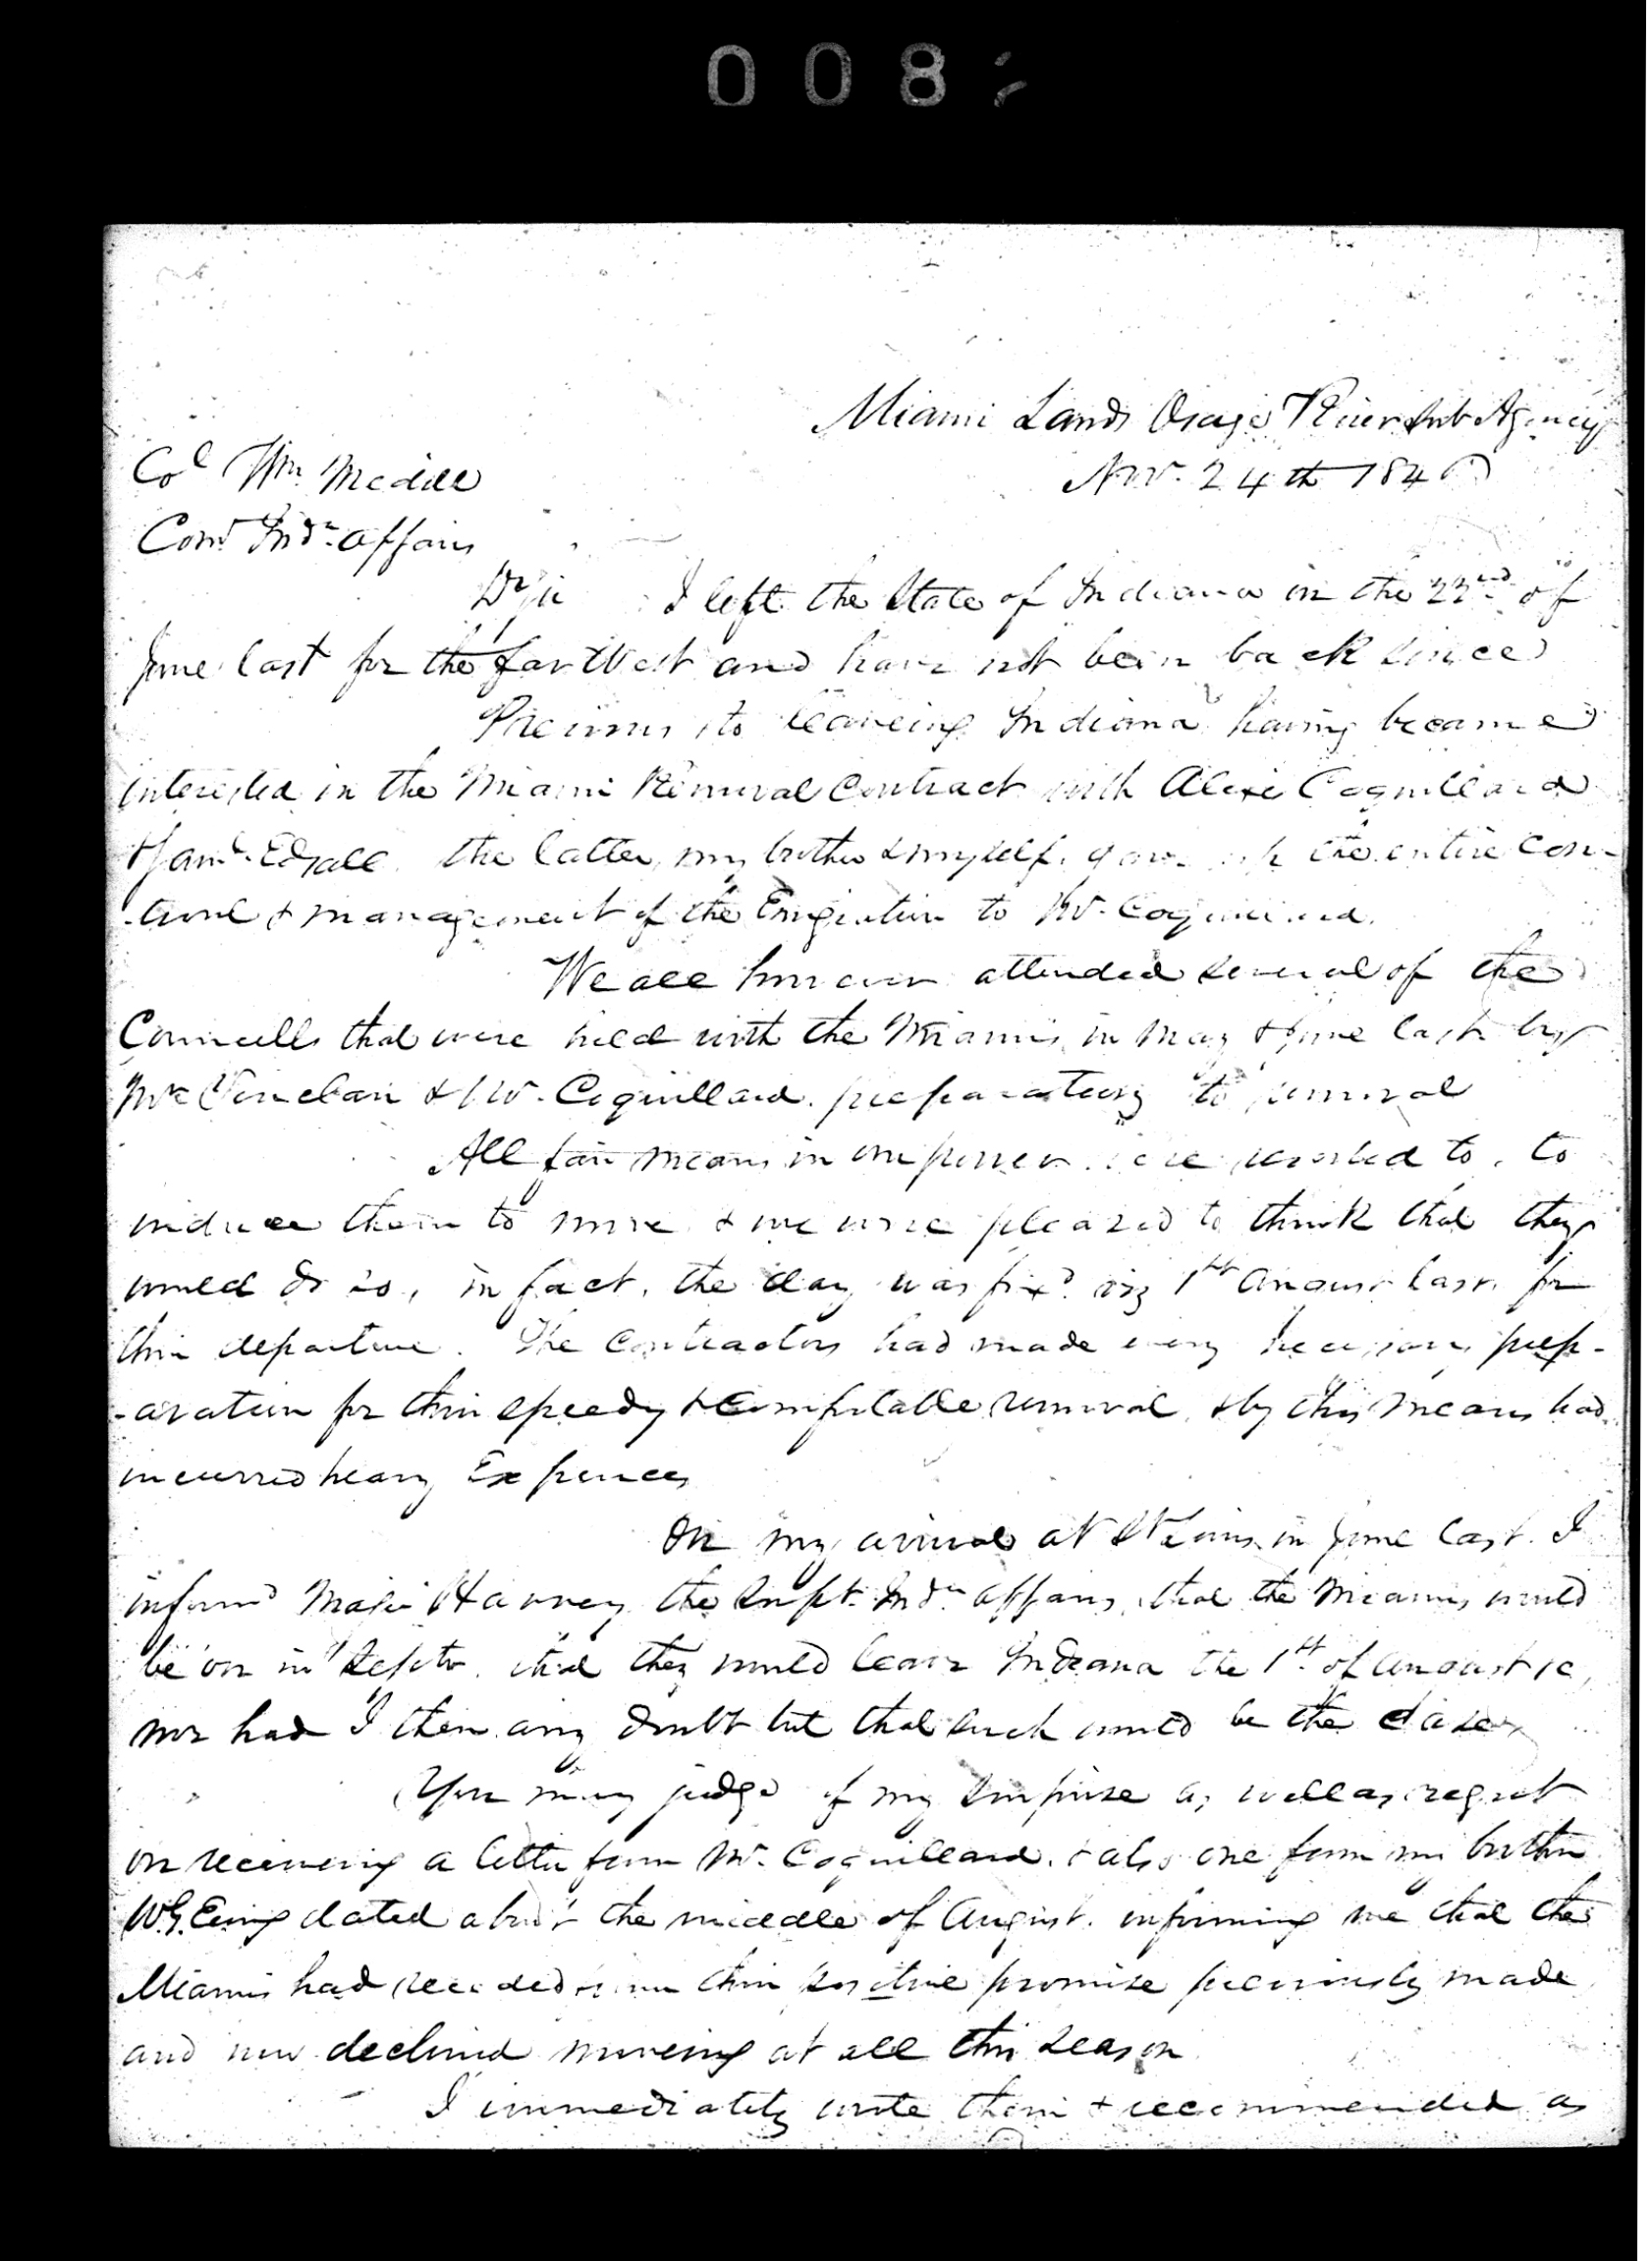 008
Miami Lands Osage River Sub Agency
Nov. 24th 1846
Col Wm. Medill
Comr Indn affairs
Dr Sir I left the State of Indiana on the 22nd of
June last for the far West and have not been back since
Previous to leaveing Indiana having became
interested in the Miami Removal Contract with Alexis Coquillard
& Saml. Edsall. the latter, my brother & myself, gave up the entire con-
-troul & management of the Emigration to Mr. Coquillard.
We all however attended several of the
Councells that were held with the Miamis, in May & June last by
Mr Sinclair & Mr. Coquillard. preparatory to removal
All fair means in our power were resorted to, to
induce them to move & we were pleased to think that they
would do so, in fact, the day was fixd. viz 1st August last. for
their departure. The Contractors had made every necessary prep-
-aration for their speedy & comfortable removal, & by this means had
incurred heavy Expences
On my arrival at St Louis in June last. I
informd Major Harvey the Supt. Indn affairs, that the Miamis, would
be on in Septr. that they would leave Indiana the 1st of August
nor had I then any doubt but that such would be the case
You may judge of my surprise as well as regret
on receiveing a letter from Mr. Coquillard. & also one from my brother
W.G. Ewing dated about the middle of August. informing me that the
Miamis had receded from their positive promise previously made
and now declined moveing at all this season
I immediately wrote them & recommended as